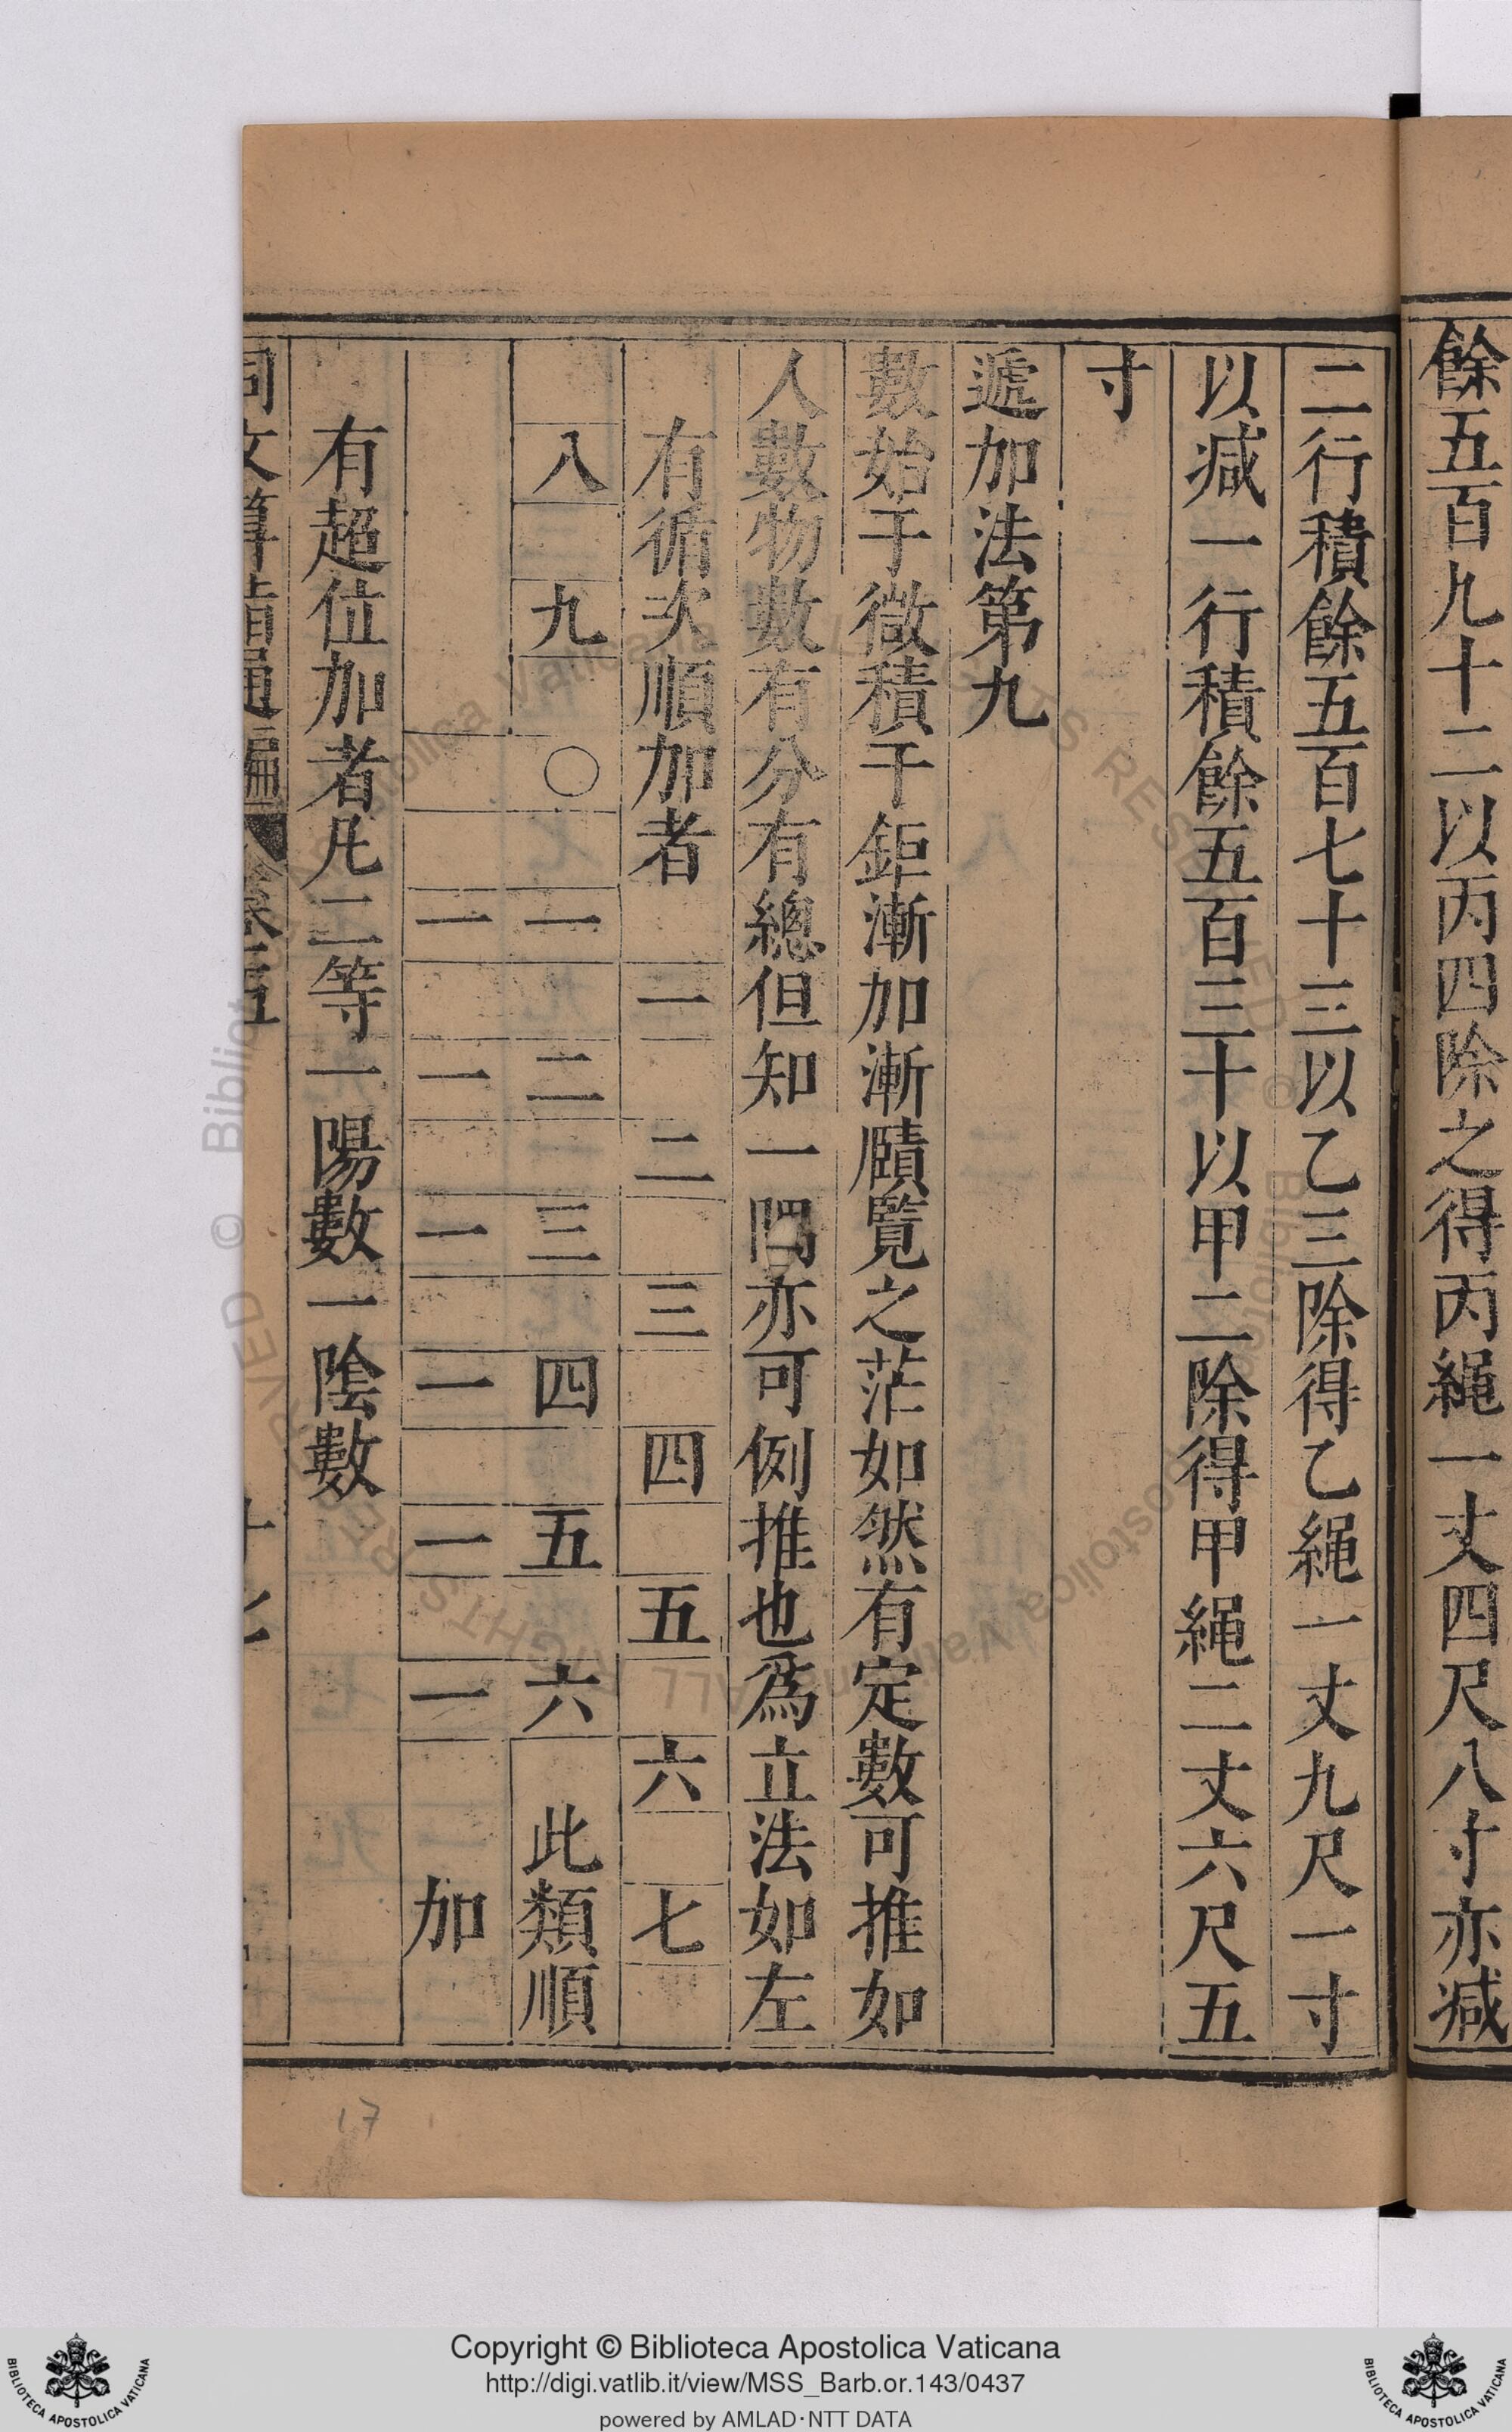 餘五百九十二以丙四除之得丙繩一丈四尺八寸亦減
二行積餘五百七十三以乙三除得乙繩一丈九尺一寸
以减一行積餘五百三十以甲二除得甲繩二丈六尺五
寸
遞加法第九
數始于微積于鉅漸加漸賾覽之茫如然有定數可推如
人數物數有分有總但知一 亦可例推也爲立法如左
有循次順加者 一 二 三 四 五 六 七
八 九 〇 一 二 三 四 五 六 此類順
一 一 一 一 一 一 加
有超位加者凡二等一陽數一陰數
同文算指通編 卷五 十七
17
Copyright © Biblioteca Apostolica Vaticana
http://digi.vatlib.it/view/MSS_Barb.or.143/0437
powered by AMLAD·NTT DATA
BIBLIOTECA APOSTOLICA VATICANA
BIBLIOTECA APOSTOLICA VATICANA